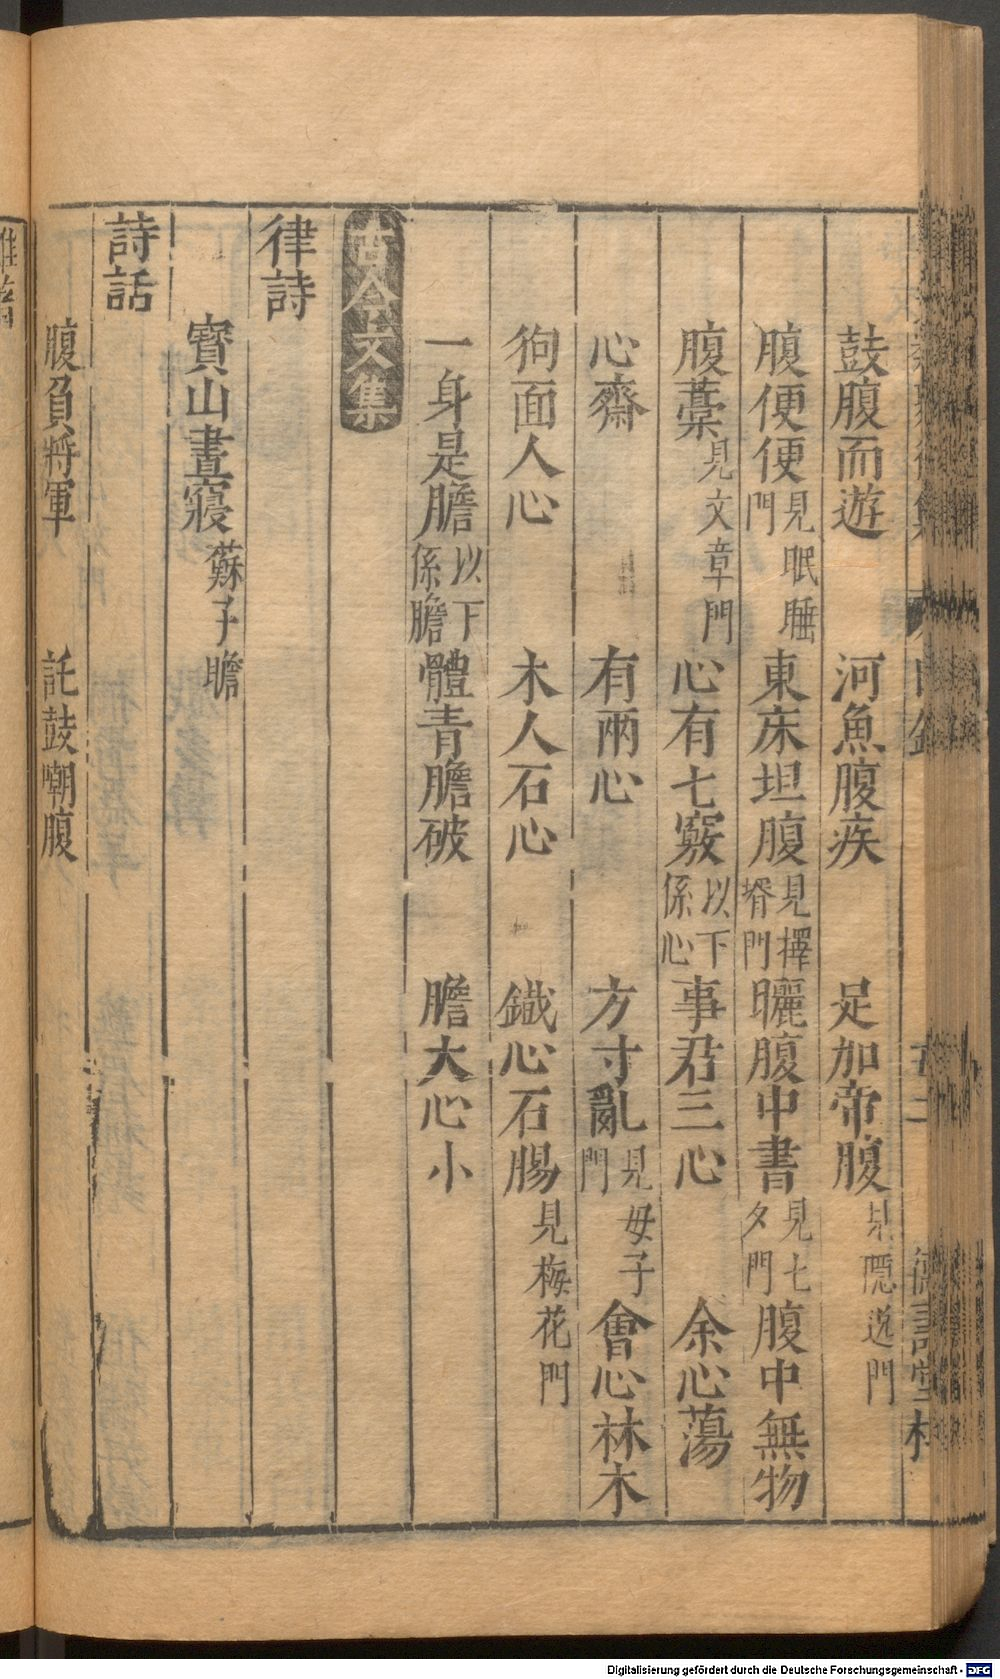 鼓腹而遊　河魚腹疾　足加帝腹見隱逸門
腹便便見眠睡門　東床坦腹見擇壻門　曬腹中書見七夕門　腹中無物
腹藁見文章門　心有七竅以下係心　事君三心　余心蕩
心齋　有兩心　方寸亂見母子門　會心林木
狗面人心　木人石心　鐵心石腸見梅花門
一身是膽以下係膽　體青膽破　膽大心小
古今文集
律詩
寶山晝寢蘇子瞻
詩話
腹負將軍　託鼓嘲腹
Digitalisierung gefördert durch die Deutsche Forschungsgemeinschaft - DFG